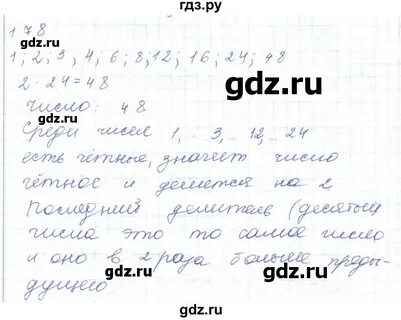 gdz.ру
178
1; 2; 3; 4; 6; 8; 12; 16; 24; 48
gdz.ru gdz.ru
2 · 24 = 48
число: 48
Среди чисел 1, .. 3, .. 12, .. 24
gdz.ru gdz.ru
есть чётные, значит число
чётное и делится на 2
Последний делитель (десятый)
gdz.ru gdz.ru
числа это то самое число
и оно в 2 раза больше преды-
дущего.
gdz.ru gdz.ru